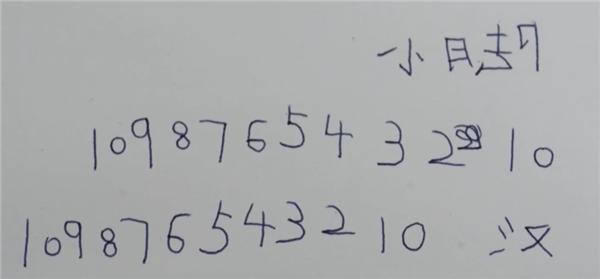 小日
10 9 8 7 6 5 4 3 2 1 0
10 9 8 7 6 5 4 3 2 1 0 汉